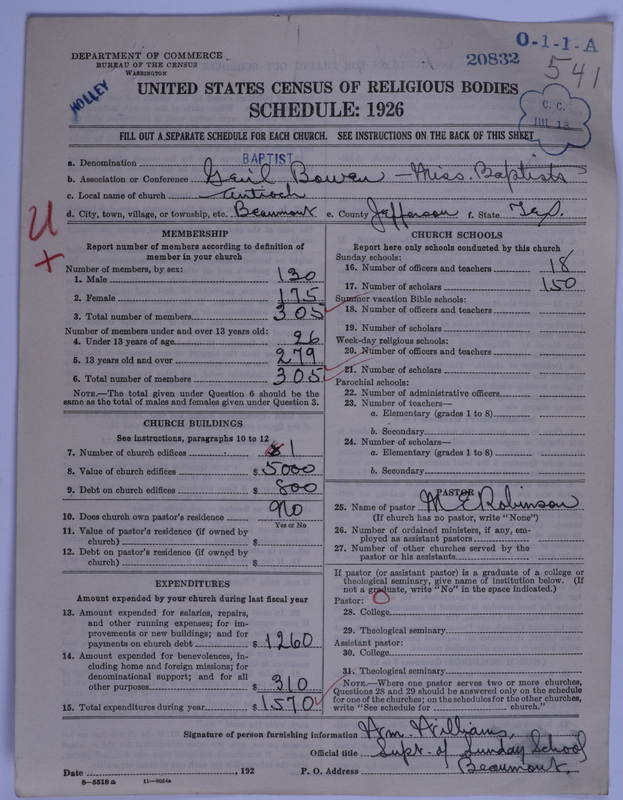 DEPARTMENT OF COMMERCE
BUREAU OF THE CENSUS
WASHINGTON
O-1-1-A
20832
541
HOLLEY
UNITED STATES CENSUS OF RELIGIOUS BODIES
SCHEDULE: 1926
C. C.
JUL 13
FILL OUT A SEPARATE SCHEDULE FOR EACH CHURCH. SEE INSTRUCTIONS ON THE BACK OF THIS SHEET
a. Denomination BAPTIST
b. Association or Conference Bowen - Miss. Baptists
c. Local name of church Antioch
d. City, town, village, or township, etc. Beaumont e. County Jefferson f. State Tex.
U
+
MEMBERSHIP
Report number of members according to definition of
member in your church
Number of members, by sex:
1. Male 130
2. Female 175
3. Total number of members 305
Number of members under and over 13 years old:
4. Under 13 years of age 26
5. 13 years old and over 279
6. Total number of members 305
NOTE.—The total given under Question 6 should be
same as the total of males and females given under Question 3.
CHURCH BUILDINGS
See instructions, paragraphs 10 to 12
7. Number of church edifices 1
8. Value of church edifices $ 5000
9. Debt on church edifices $ 800
10. Does church own pastor's residence No
Yes or No
11. Value of pastor's residence (if owned by
church) $
12. Debt on pastor's residence (if owned by
church) $
EXPENDITURES
Amount expended by your church during last fiscal year
13. Amount expended for salaries, repairs,
and other running expenses; for im-
provements or new buildings; and for
payments on church debt $ 1260
14. Amount expended for benevolences, in-
cluding home and foreign missions; for
denominational support; and for all
other purposes $ 310
15. Total expenditures during year $ 1570
CHURCH SCHOOLS
Report here only schools conducted by this church
Sunday schools:
16. Number of officers and teachers 18
17. Number of scholars 150
Summer vacation Bible schools:
18. Number of officers and teachers
19. Number of scholars
Week-day religious schools:
20. Number of officers and teachers
21. Number of scholars
Parochial schools:
22. Number of administrative officers
23. Number of teachers—
a. Elementary (grades 1 to 8)
b. Secondary
24. Number of scholars—
a. Elementary (grades 1 to 8)
b. Secondary
PASTOR
25. Name of pastor M E Robinson
(If church has no pastor, write "None")
26. Number of ordained ministers, if any, em-
ployed as assistant pastors
27. Number of other churches served by the
pastor or his assistants
If pastor (or assistant pastor) is a graduate of a college or
theological seminary, give name of institution below. (If
not a graduate, write "No" in the space indicated.)
Pastor: 0
28. College
29. Theological seminary
Assistant pastor:
30. College
31. Theological seminary
NOTE.—Where one pastor serves two or more churches,
Questions 28 and 29 should be answered only on the schedule
for one of the churches; on the schedules for the other churches,
write "See schedule for church."
Signature of person furnishing information Wm. Williams,
Official title Supt. of Sunday School
Date , 192 P. O. Address Beaumont.
8—5518 a 11—9024a